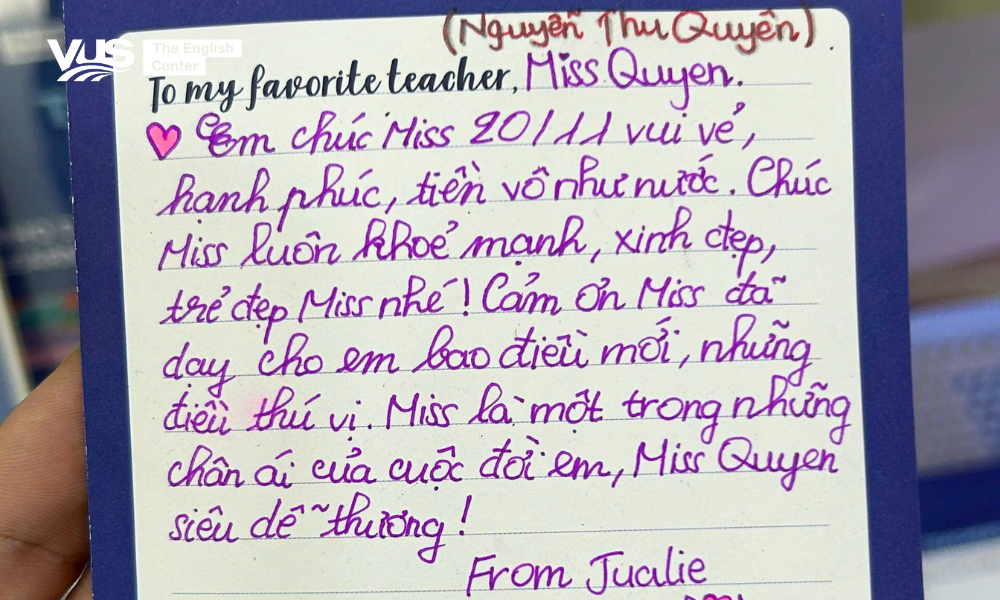 VUS The English Center
(Nguyễn Thu Quyên).
To my favorite teacher, Miss Quyen.
Em chúc Miss 20/11 vui vẻ,
hạnh phúc, tiền vô như nước. Chúc
Miss luôn khoẻ mạnh, xinh đẹp,
trẻ đẹp Miss nhé! Cảm ơn Miss đã
dạy cho em bao điều mới, những
điều thú vị. Miss là một trong những
chân ái của cuộc đời em, Miss Quyen
siêu dễ thương!
From Jualie